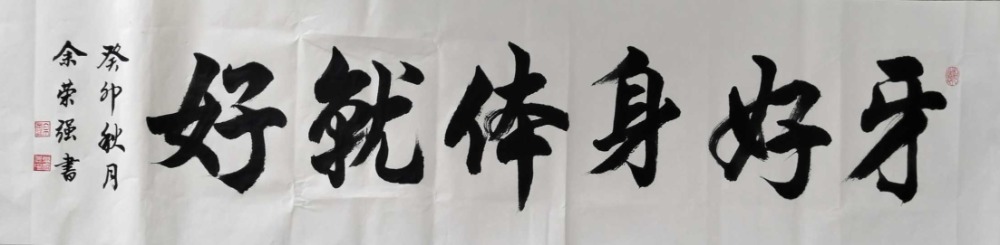 牙好身体就好
癸卯秋月
余荣强书